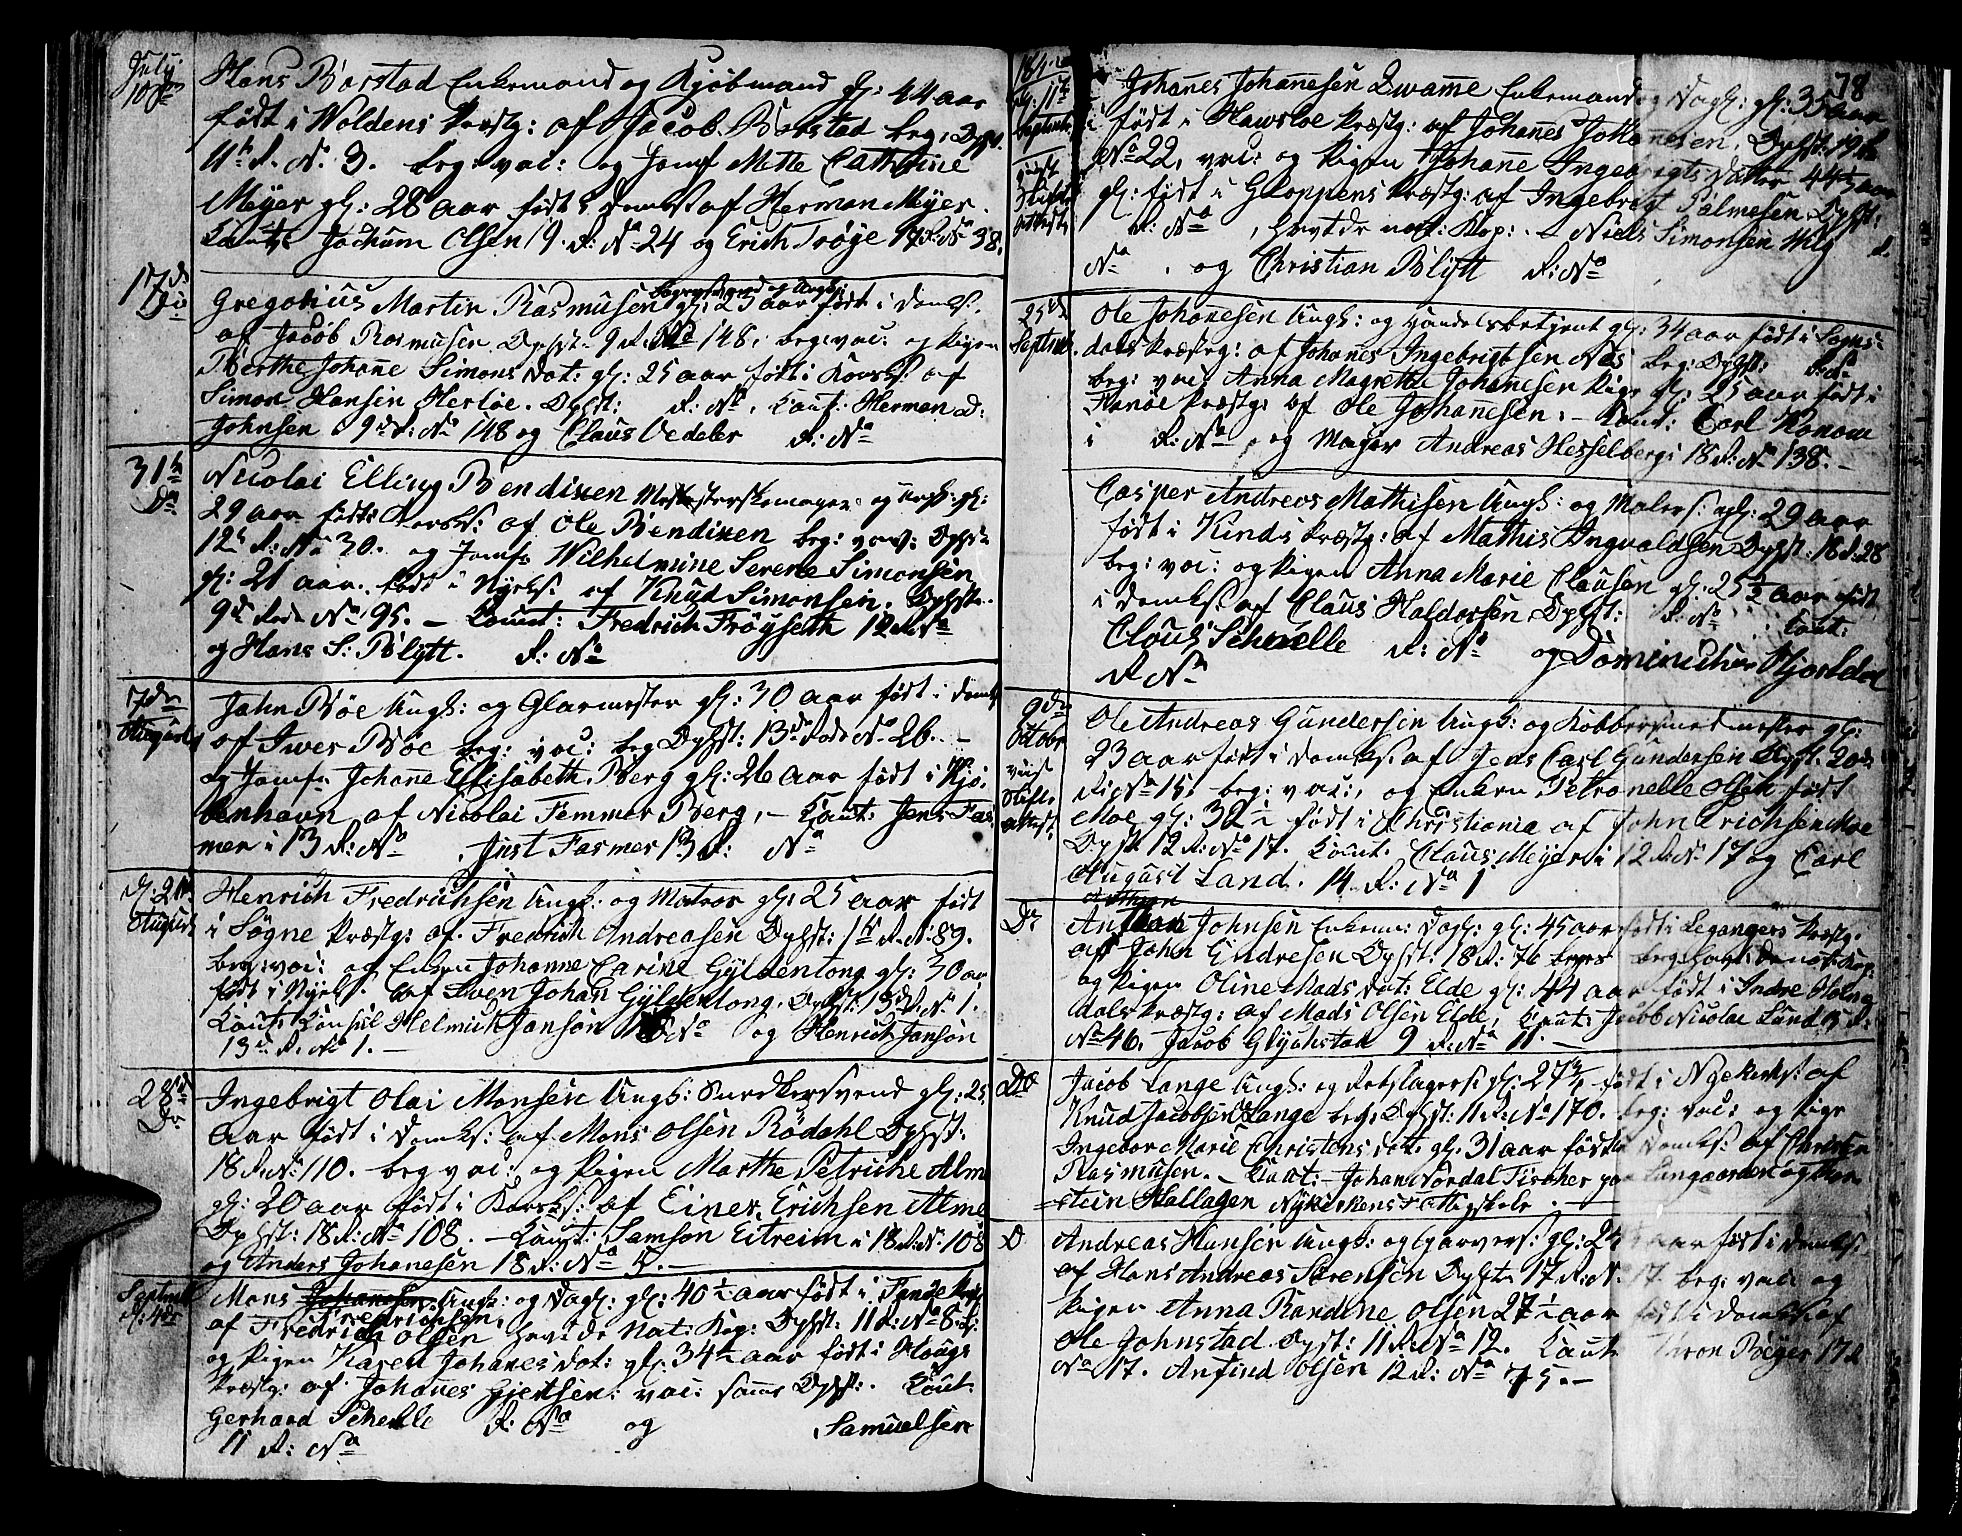 July
10de
Hans Borstad Enkemand og Kjøbmand gl: 44 aar
født i Woldens Præstg: af Jacob Borstad beg: Dpst.
4de R. No 3. beg: vac: og Jomf Mette Cathrine
Meyer gl: 28 aar født i Domks af Herman Meyer.
Caut: Jochum Olsen 19. R: No 24 og Erich Trøye 17 R: No 38.
17de
Do
Gregorius Martin Rasmusen gl: 25 aar født i Domks.
af Jacob Rasmusen Dpst. 9 R. No 148, beg: vac: og Pigen
Berthe Johane Simons dat: gl: 25 aar født i Korsk: af
Simon Hansen Herløe. Dpst: R: No, Caut: Herman D:
Johnsen i 9de R: No 148 og Claus Oedeler R: No
31te
Do
Nicolai Elling Bendixen og Ungk: gl:
29 aar født i Korsk: af Ole Bendixen beg: vac: Dpst:
12te R: No 30. og Jomfr Wilhelmine Serene Simonsen
gl: 21 aar. født i Nyeks: af Knud Simonsen. Dpst:
9de Rode No 95. – Caut: Fredrich Frøyseth 12 R: No
og Hans S: Blytt. R: No
17de
August
John Bøe Ungk: og Glarmester gl: 30 aar født i Domk
af Iwer Bøe beg: vac: beg Dpst: 13de Rode No 26. –
og Jomfr Johane Elisabeth Berg gl: 26 aar født i Kjö-
benhavn af Nicolai Temmer Berg, – Caut: Jens Fas-
mer i 13 R: No , Just Fasmer 13 R: No
d: 21de
August
Henrich Fredrichsen Ungk: og Matros gl: 25 aar født
i Søgne Præstg: af Fredrich Andreasen Dpst: 1te R. No 89.
beg: vac: og Enken Johanne Carine Gyldentong gl: 30 aar
født i Nyeks: af Swen Johan Gyldentong. Dpst: 13de R. No 1.
Caut: Consul Helmich Janson R: No og Henrich Janson
13de R. No 1. –
28de
Do
Ingebrigt Olai Monsen Ungk: Snedkersvend gl: 25
aar født i Domks: af Mons Olsen Rødahl Dpst:
18 R. No 110. beg vac: og Pigen Marthe Petriche Alme
gl: 20 aar født i Korsks: af Einer Erichsen Alme
Dpst: 18 R. No 108. – Caut: Samson Eitreim i 18 R. No 108
og Anders Johanesen 18 R: No 5. –
Septembr
d: 4de
Mons Johanesen Ungk: og Dagl: gl: 40½ aar født i
Fredrichsen
af Fredrich Olsen havt de Nat: Kop: Dpst: 11 R: No 8
og Pigen Karen Johanes dat: gl: 34½ aar født i Hougs
Præstg: af Johanes Gjertsen: vac: samme Dpst: Caut:
Gerhard Schelle R: No og Samuelsen
11 R: No
78
d: 11te
Septembr
Johanes Johanesen Qvame Enkemand og Dagl: gl: 35 aar
født i Hawsloe Præstg: af Johanes Johanesen, Dpst: 19 R
No 22, vac: og Pigen Johane Ingebrigts datter 44½ aar
gl: født i Gloppens Præstg: af Ingebrigt Palmesen Dpst:
R: No , havt de nat: Kop: – Niels Simonsen Wiig R.
No . og Christian Blytt R: No
25de
Septembr
Ole Johanesen Ungk: og Handelsbetjent gl: 34 aar født i Sogn-
dals Præstg: af Johanes Ingebrigtsen Næs beg: Dpst: R. No
beg: vac: Anna Magrethe Johanesen Pige gl: 25 aar født i
Fanøe Præstg: af Ole Johanesen. – Caut: Carl Konow
i R: No , og Mægler Andreas Hesselberg i 18 R: No 138. –
Casper Andreas Mathisen Ungk: og Malers: gl: 29 aar
født i Kinds Præstg: af Mathis Ingvaldsen Dpst: 18 R: 28
beg: vac: og Pigen Anna Marie Clausen gl: 25½ aar født
i Domks: af Claus Haldorsen Dpst: R: No . Caut:
Claus Schnelle R: No og Dominichus Hjortdal
R No
9de
Octobr
Ole Andreas Gundersen Ungk: og Kobbersmedmester gl:
23 aar født i Domks: af Jens Carl Gundersen Dpst. 20de
R: No 15. beg: vac:, og Enken Petronelle Olsen født
Moe gl: 32½ født i Christiania af John Erichsen Moe
Dpst: 12 R: No 17. Caut: Claus Meyer i 12 R: No 17 og Carl
August Land. 14 R: No 1
Do
Johnsen Enkem: Dagl: gl: 45 aar født i Legangers Præstg.
af John Endresen Dpst: 18 R: 76
og Pigen Oline Mads dat: Elde gl: 44 aar født i Indre Holme-
dals Præstg: af Mads Olsen Elde, Caut: Jacob Nicolai Lund 15 R:
No 46. Jacob Glydstad 9 R: No 11. –
Do
Jacob Lange Ungk: og Rebslagers: gl: 27¾ født i Nyekirks: af
Knud Jacobsen Lange beg: Dpst: 11 R: No 170. beg: vac: og Pige
Ingebor Marie Christens dat: gl: 31 aar født i Domks: af Christen
Rasmusen. – Caut: – Johan Nordal Fischer paa Langaarden og Thor-
stein Hallagen Nykirkens Fattigskole. –
D
Andreas Hansen Ungk: og Garvers: gl: 24 aar født i Domks:
af Hans Andreas Sørensen Dpst: 17 R: No 17. beg: vac: og
Pigen Anna Randine Olsen 27½ aar født i Domks: af
Ole Johnstad. Dpst: 11 R: No 12. Caut: Thron Bøyer 17 R
No 17. Anfind Olsen 12 R: No 75. –